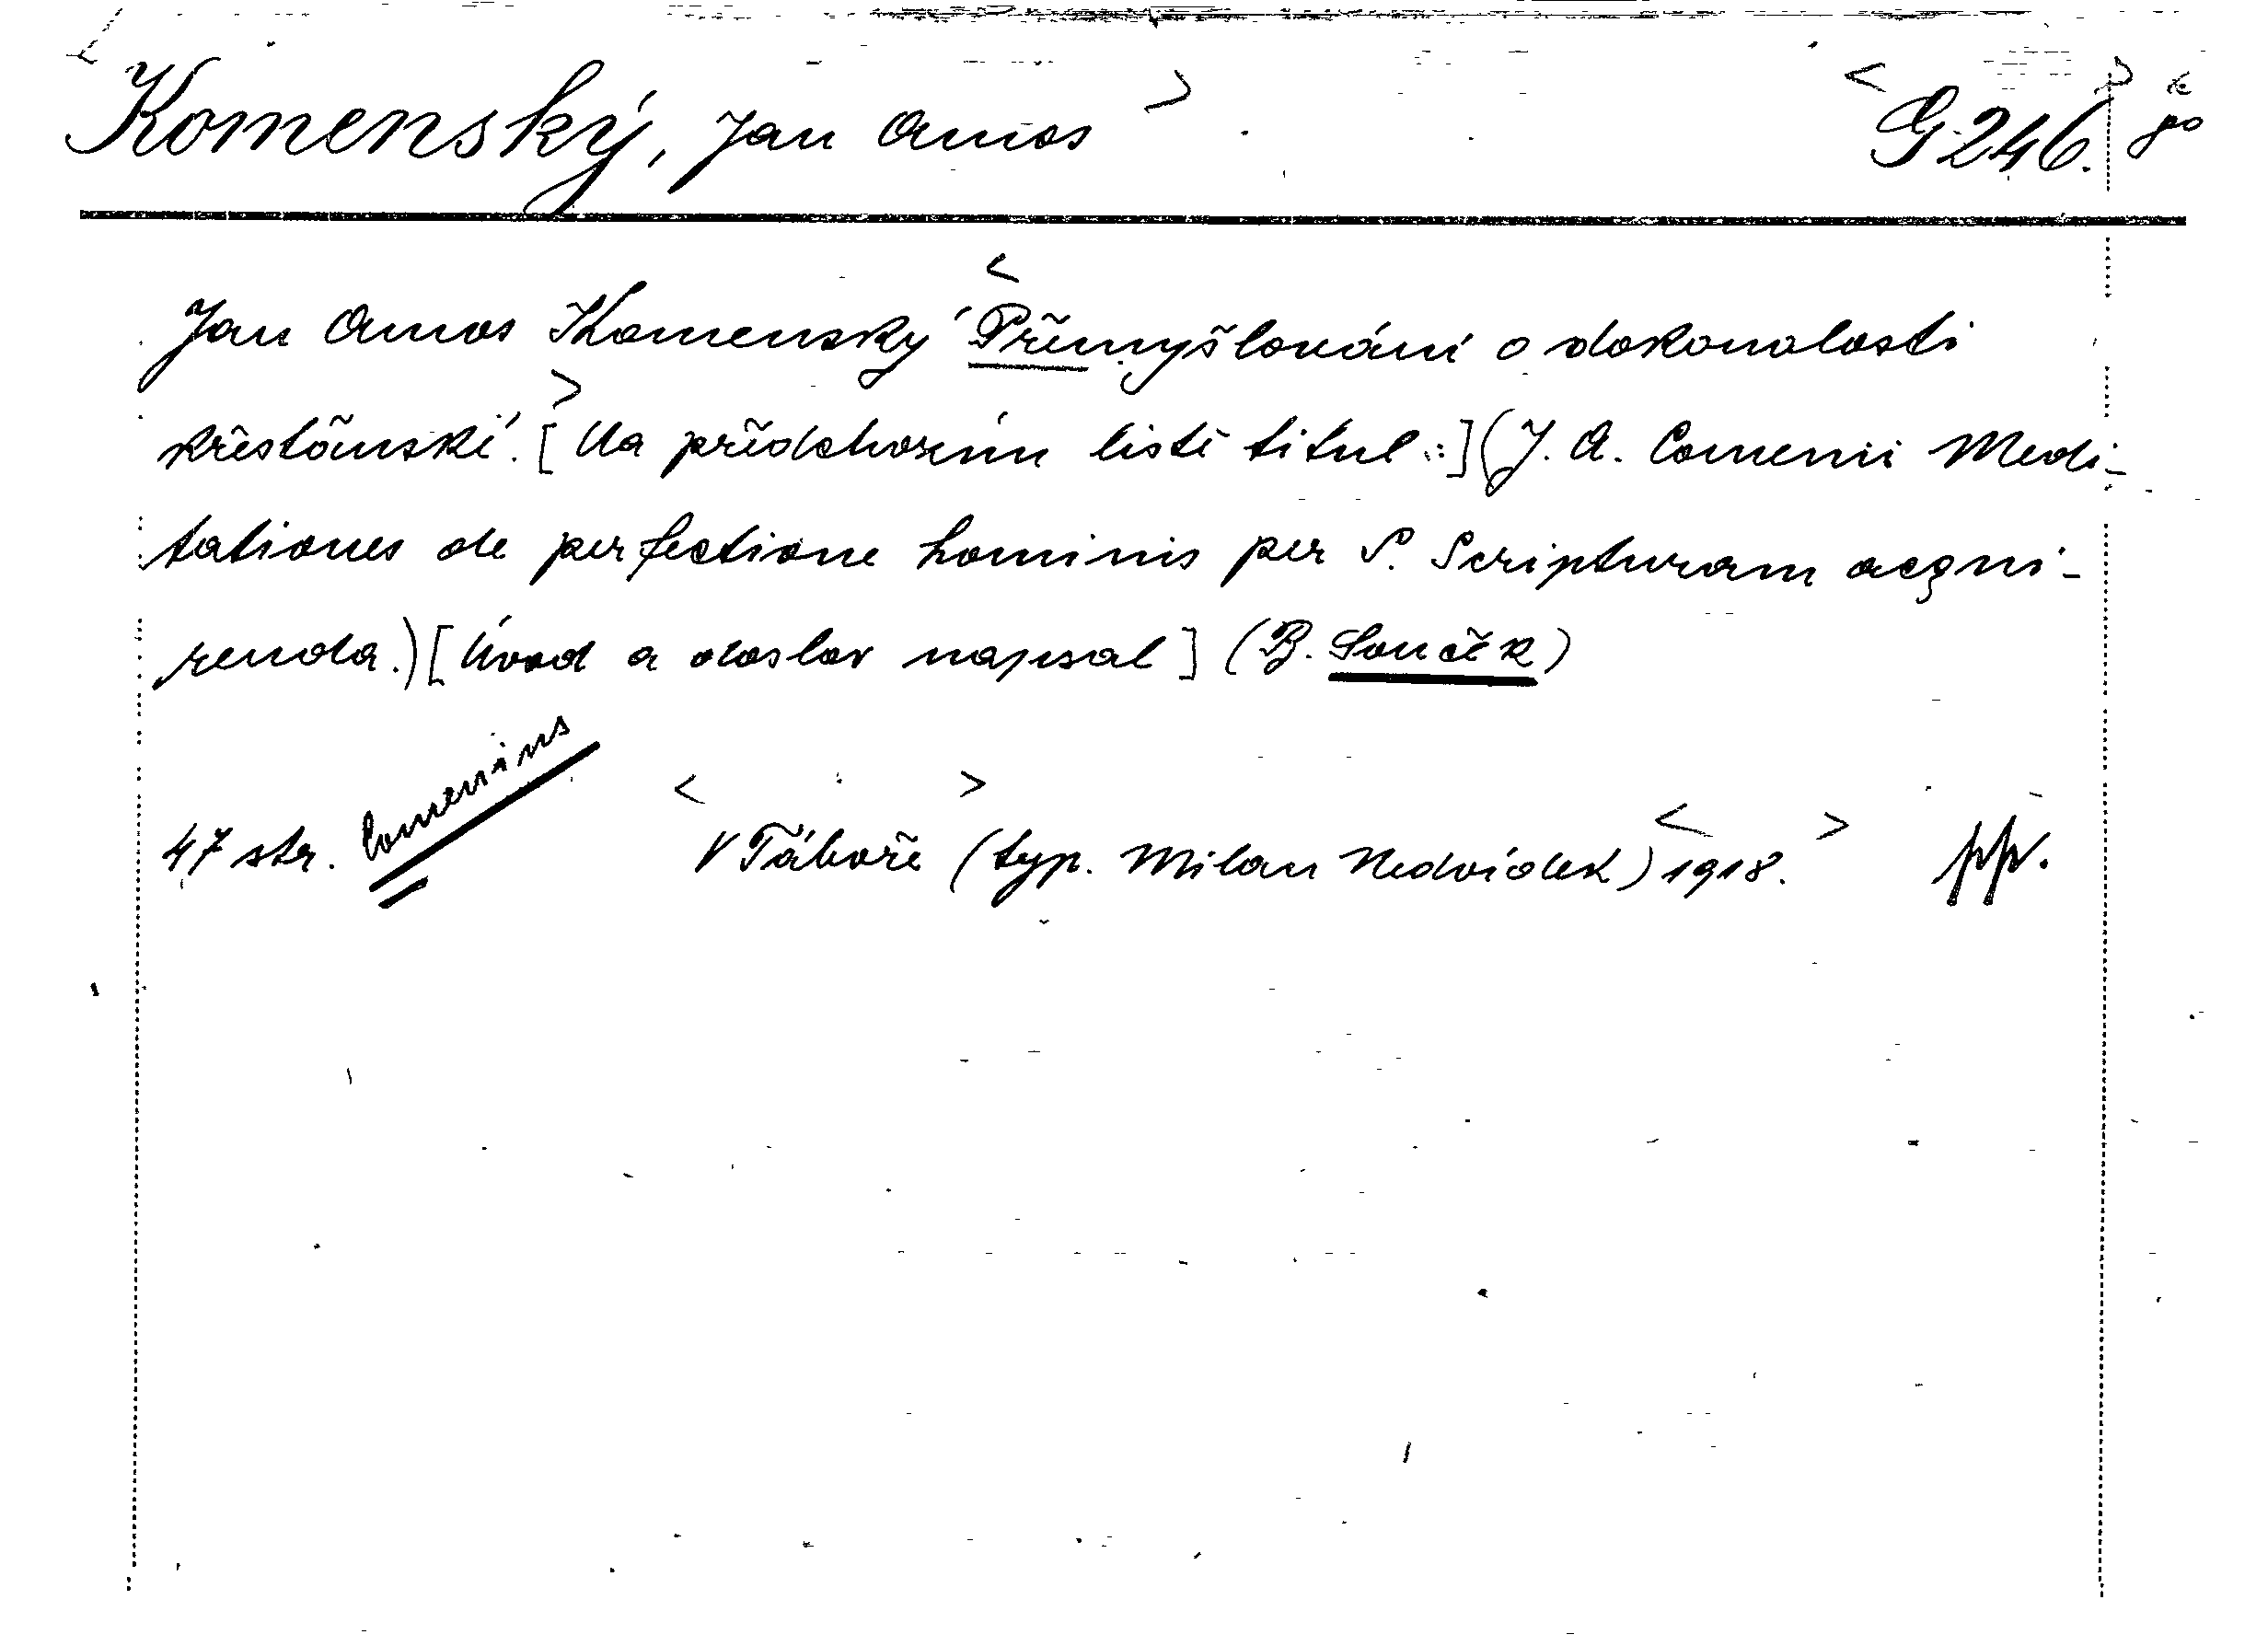 Komenský, Jan Amos G 246.
Jan Amos Komenský Přemyšlování o dokonalosti
křesťanské. [Na předchozím listě titul:] (J. A. Comenii Medi-
tationes de perfectione hominis per S. Scripturam acqui-
renda.) [Úvod a doslov napsal] (B. Souček)
Comenius
47 str. V Táboře (typ. Milan Nedvídek) 1918. pp.